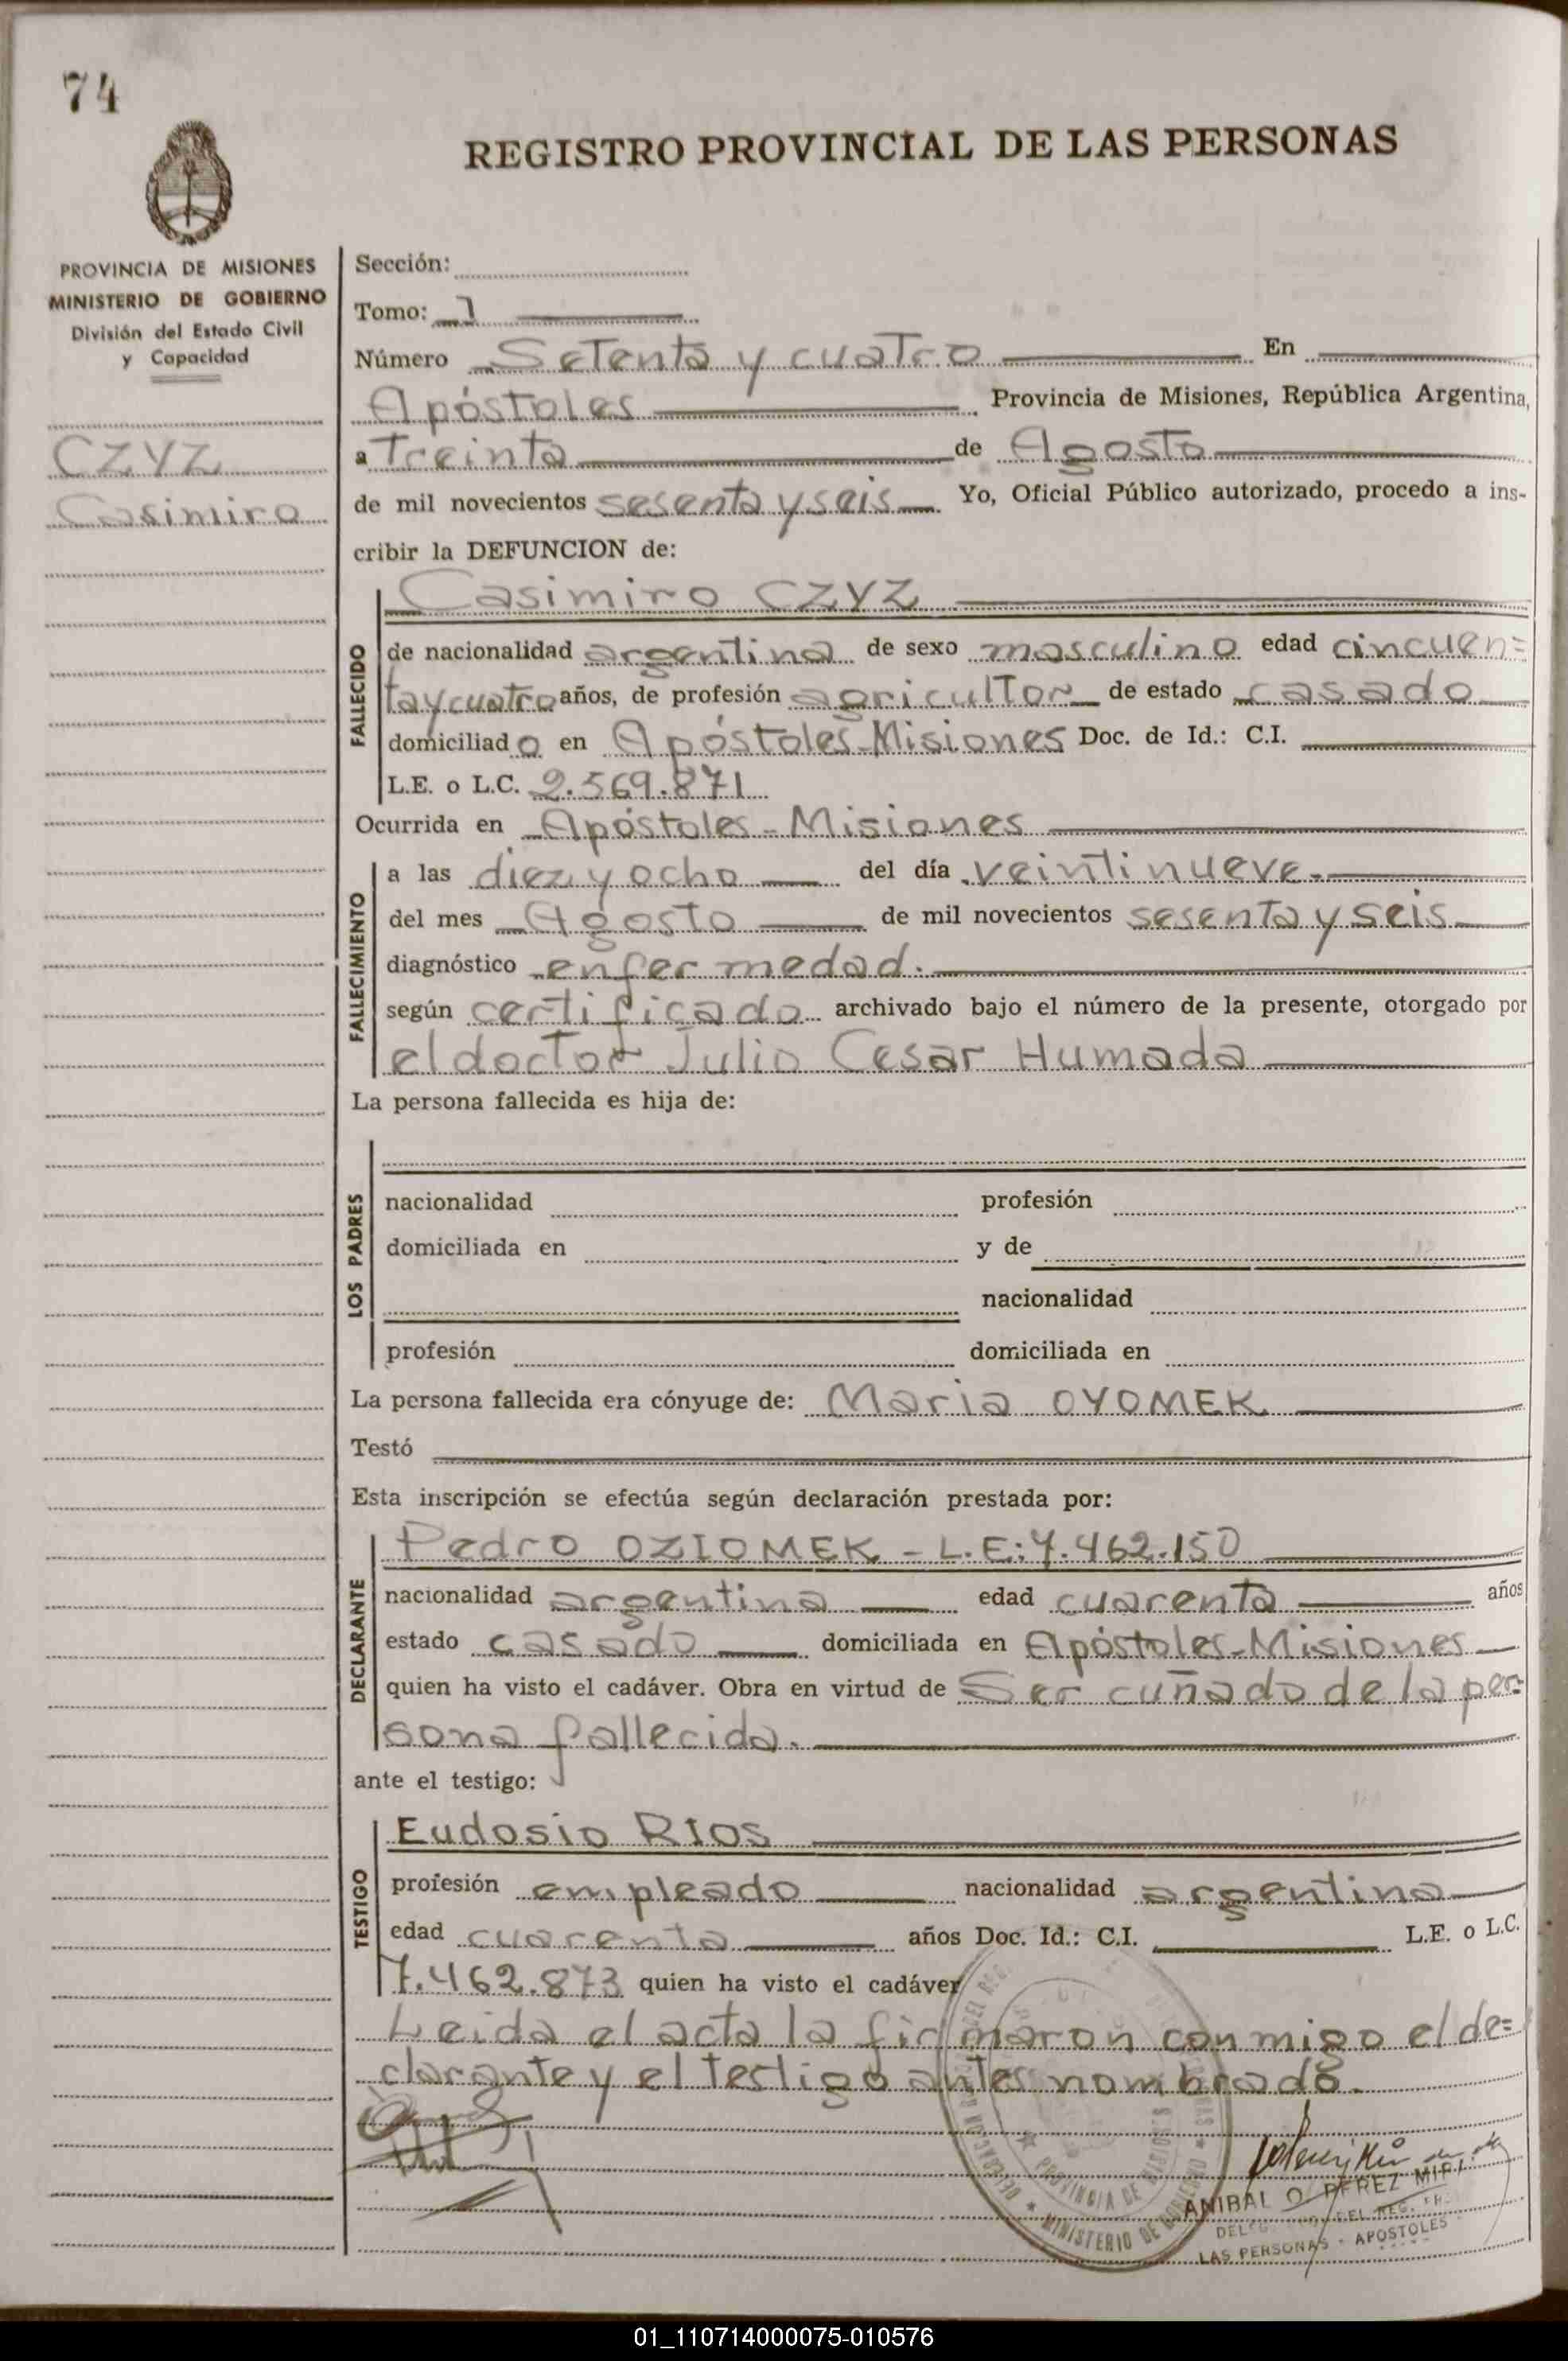 74
REGISTRO PROVINCIAL DE LAS PERSONAS
PROVINCIA DE MISIONES
MINISTERIO DE GOBIERNO
División del Estado Civil
y Capacidad
CZYZ
Casimiro
Sección:
Tomo: 1
Número Setenta y cuatro En
Apóstoles Provincia de Misiones, República Argentina,
a Treinta de Agosto
de mil novecientos sesenta y seis Yo, Oficial Público autorizado, procedo a ins-
cribir la DEFUNCION de:
FALLECIDO
Casimiro CZYZ
de nacionalidad argentina de sexo masculino edad cincuen=
ta y cuatro años, de profesión agricultor de estado casado
domiciliado en Apóstoles-Misiones Doc. de Id.: C.I.
L.E. o L.C. 2.569.871
Ocurrida en Apóstoles - Misiones
FALLECIMIENTO
a las diez y ocho del día veintinueve.
del mes Agosto de mil novecientos sesenta y seis
diagnóstico enfermedad.
según certificado archivado bajo el número de la presente, otorgado por
el doctor Julio Cesar Humada
La persona fallecida es hija de:
LOS PADRES
nacionalidad profesión
domiciliada en y de
nacionalidad
profesión domiciliada en
La persona fallecida era cónyuge de: Maria OYOMEK
Testó
Esta inscripción se efectúa según declaración prestada por:
DECLARANTE
Pedro OZIOMEK - L.E: 7.462.150
nacionalidad argentina edad cuarenta años
estado casado domiciliada en Apóstoles-Misiones
quien ha visto el cadáver. Obra en virtud de Ser cuñado de la per=
sona fallecida.
ante el testigo:
TESTIGO
Eudosio RIOS
profesión empleado nacionalidad argentina
edad cuarenta años Doc. Id.: C.I. L.E. o L.C.
7.462.873 quien ha visto el cadáver
Leida el acta la firmaron conmigo el de=
clarante y el testigo antes nombrado.
PROVINCIA DE MISIONES
MINISTERIO DE GOBIERNO
ANIBAL O. PEREZ
LAS PERSONAS - APOSTOLES
01_110714000075-010576